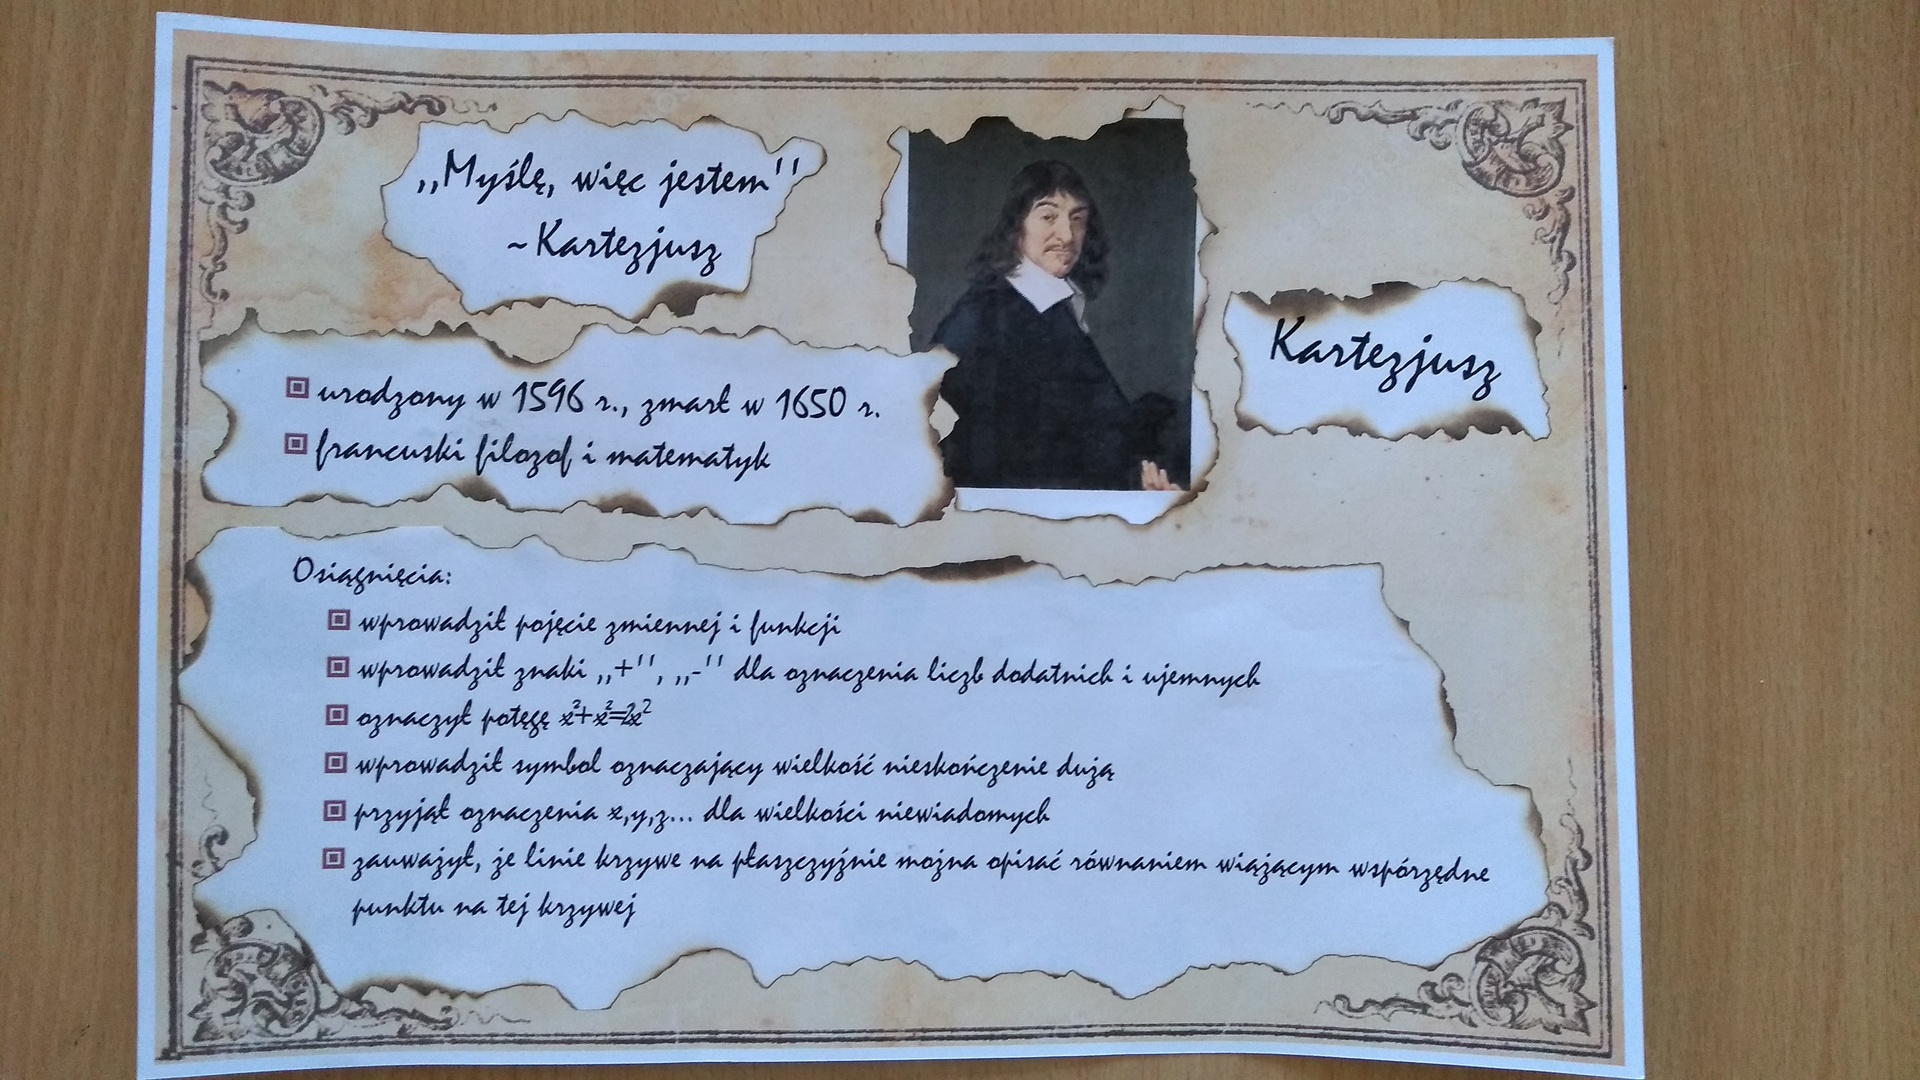 ,,Myślę, więc jestem''
~Kartezjusz
Kartezjusz
urodzony w 1596 r., zmarł w 1650 r.
francuski filozof i matematyk
Osiągnięcia:
wprowadził pojęcie zmiennej i funkcji
wprowadził znaki ,,+'', ,,-'' dla oznaczenia liczb dodatnich i ujemnych
oznaczył potęgę x²+x²=2x²
wprowadził symbol oznaczający wielkość nieskończenie dużą
przyjął oznaczenia x,y,z... dla wielkości niewiadomych
zauważył, że linie krzywe na płaszczyźnie można opisać równaniem wiążącym wspórzędne
punktu na tej krzywej